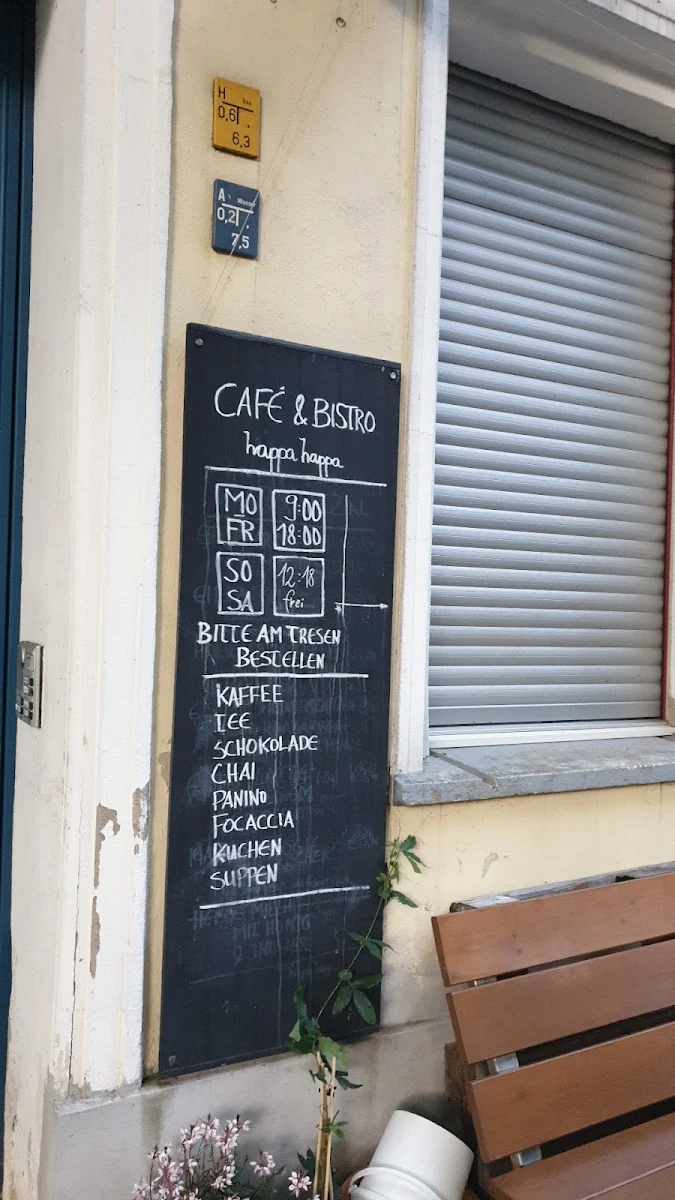 H
0,6
6,3
A Wasser
0,2
7,5
CAFÉ & BISTRO
happa happa
MO 9:00
FR 18:00
SO 12:18
SA frei
BITTE AM TRESEN
BESTELLEN
KAFFEE
TEE
SCHOKOLADE
CHAI
PANINO
FOCACCIA
KUCHEN
SUPPEN